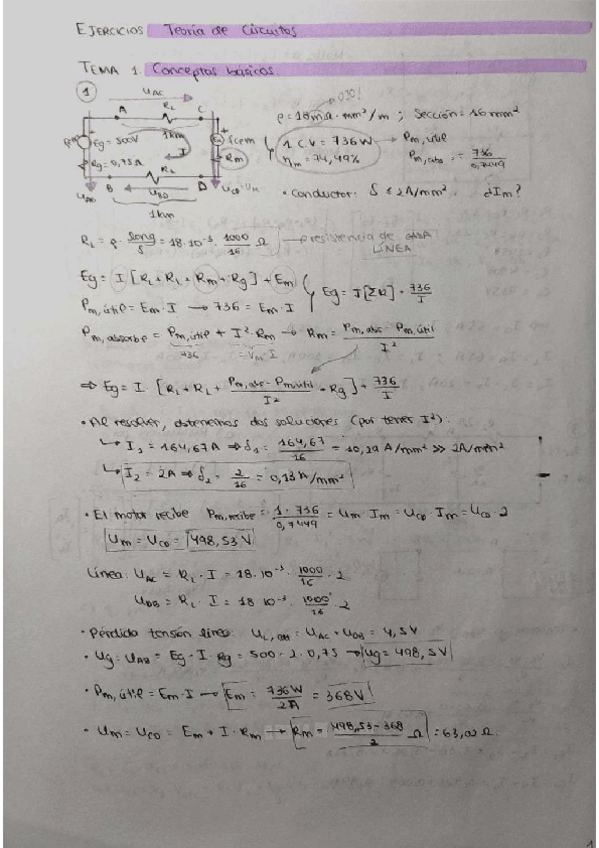 EJERCICIOS Teoría de Circuitos
TEMA 1. Conceptos básicos
1
U_AC
A R_L C
ρ = 18 mΩ · mm²/m ; Sección = 16 mm²
Eg = 500V
1km
I
Rg = 0,75Ω
fcem
Rm
1 C.V = 736 W → Pm,útil
ηm = 74,49% Pm,abs = 736/0,7449
B R_L D
U_AB U_BD U_CD = Um
1km
• Conductor: δ ≤ 2A/mm². ¿Im?
R_L = ρ · long/S = 18·10⁻³ · 1000/16 Ω → resistencia de CADA LÍNEA
Eg = I [R_L + R_L + Rm + Rg] + Em
Pm,útil = Em · I → 736 = Em · I
Eg = I[ΣR] + 736/I
Pm,absorbe = Pm,útil + I² · Rm → Rm = (Pm,abs - Pm,útil)/I²
736 = Vm · I
⇒ Eg = I · [R_L + R_L + (Pm,abs - Pm,útil)/I² + Rg] + 736/I
• Al resolver, obtenemos dos soluciones (por tener I²):
↳ I₁ = 164,67 A ⇒ δ₁ = 164,67/16 = 10,29 A/mm² >> 2A/mm²
↳ I₂ = 2A ⇒ δ₂ = 2/16 = 0,13 A/mm²
• El motor recibe Pm,recibe = 1 · 736/0,7449 = Um Im = U_CD · Im = U_CD · 2
Um = U_CD = 498,53 V
Línea: U_AC = R_L · I = 18·10⁻³ · 1000/16 · 2
U_DB = R_L · I = 18·10⁻³ · 1000/16 · 2
• Pérdida tensión línea: = U_AC + U_DB = 4,5V
• Ug = U_AB = Eg - I · Rg = 500 - 2 · 0,75 → Ug = 498,5V
• Pm,útil = Em · I → Em = 736W/2A = 368V
• Um = U_CD = Em + I · Rm → Rm = (498,53 - 368)/2 Ω = 63,02 Ω.
1